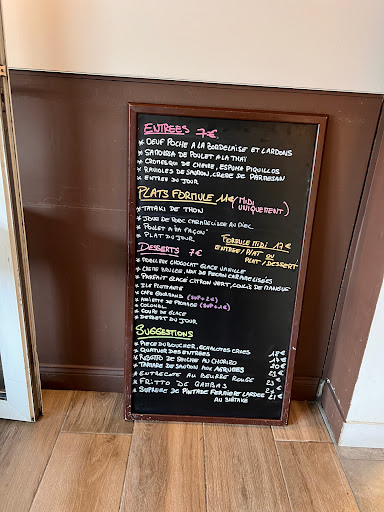 ENTREES 7€
* OEUF POCHE A LA BORDELAISE ET LARDONS
* SAMOUSSA DE POULET A LA THAI
* CROMESQUI DE CHEVRE, ESPUMA PIQUILLOS
* RAVIOLES DE SAUMON, CREME DE PARMESAN
* ENTREE DU JOUR
PLATS FORMULE 14€ (MIDI UNIQUEMENT)
* TATAKI DE THON
* JOUE DE PORC CARAMELISEE AU MIEL
* POULET A MA FAÇON
* PLAT DU JOUR
FORMULE MIDI 17€
ENTREE/PLAT OU
PLAT/DESSERT
DESSERTS 7€
* MOELLEUX CHOCOLAT GLACE VANILLE
* CREME BRULEE, NOIX DE PECAN CARAMELISEES
* PARFAIT GLACÉ CITRON VERT, COULIS DE MANGUE
* ILE FLOTTANTE
* CAFE GOURMAND (SUP + 2€)
* ASSIETTE DE FROMAGE (SUP + 2€)
* COLONEL
* COUPE DE GLACE
* DESSERT DU JOUR
SUGGESTIONS
* PIECE DU BOUCHER, ECHALOTES CRUES 18€
* QUATUOR DES ENTREES
* RISOTTO DE SEICHE AU CHORIZO
* TARTARE DE SAUMON AUX AGRUMES 20€
* ENTRECOTE AU BEURRE ROUGE
* FRITTO DE GAMBAS
* SUPREME DE PINTADE FERMIERE LARDEE 21€
AU SHIITAKE